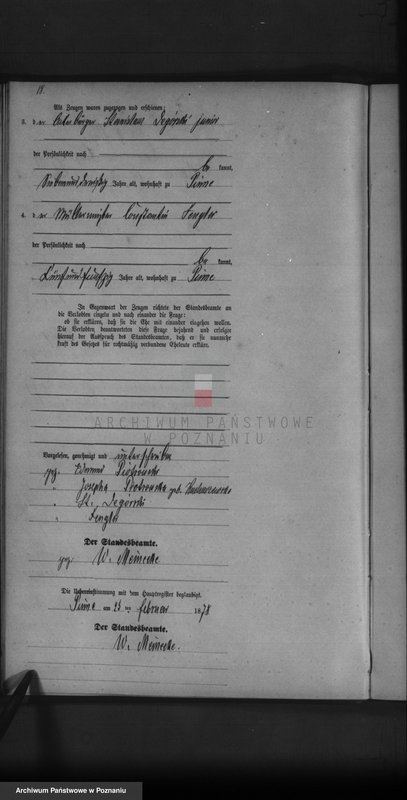 18.
Als Zeugen waren zugezogen und erschienen:
3. der Ackerbürger Stanislaus Degórski junior
der Persönlichkeit nach
be kannt,
Jahre alt, wohnhaft zu Pinne
4. der Constantin Lengler
der Persönlichkeit nach
be kannt,
fünfundfünfzig Jahre alt, wohnhaft zu Pinne
In Gegenwart der Zeugen richtete der Standesbeamte an
die Verlobten einzeln und nach einander die Frage:
ob sie erklären, daß sie die Ehe mit einander eingehen wollen.
Die Verlobten beantworteten diese Frage bejahend und erfolgte
hierauf der Ausspruch des Standesbeamten, daß er sie nunmehr
kraft des Gesetzes für rechtmäßig verbundene Eheleute erkläre.
ARCHIWUM PAŃSTWOWE
W POZNANIU
Vorgelesen, genehmigt und unterschrieben
gez. Piotrowski
" Josepha Piotrowska geb.
" St. Degórski
" Lengler
Der Standesbeamte.
gez. W. Meinecke
Die Uebereinstimmung mit dem Hauptregister beglaubigt.
Pinne am 25 ten Februar 1878
Der Standesbeamte.
W. Meinecke.
Archiwum Państwowe w Poznaniu